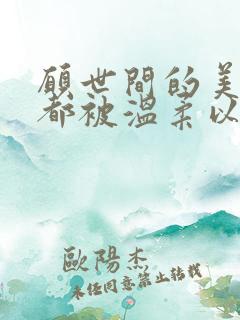 願世間的美
都被溫柔以
歐陽杰
未经同意禁止转载